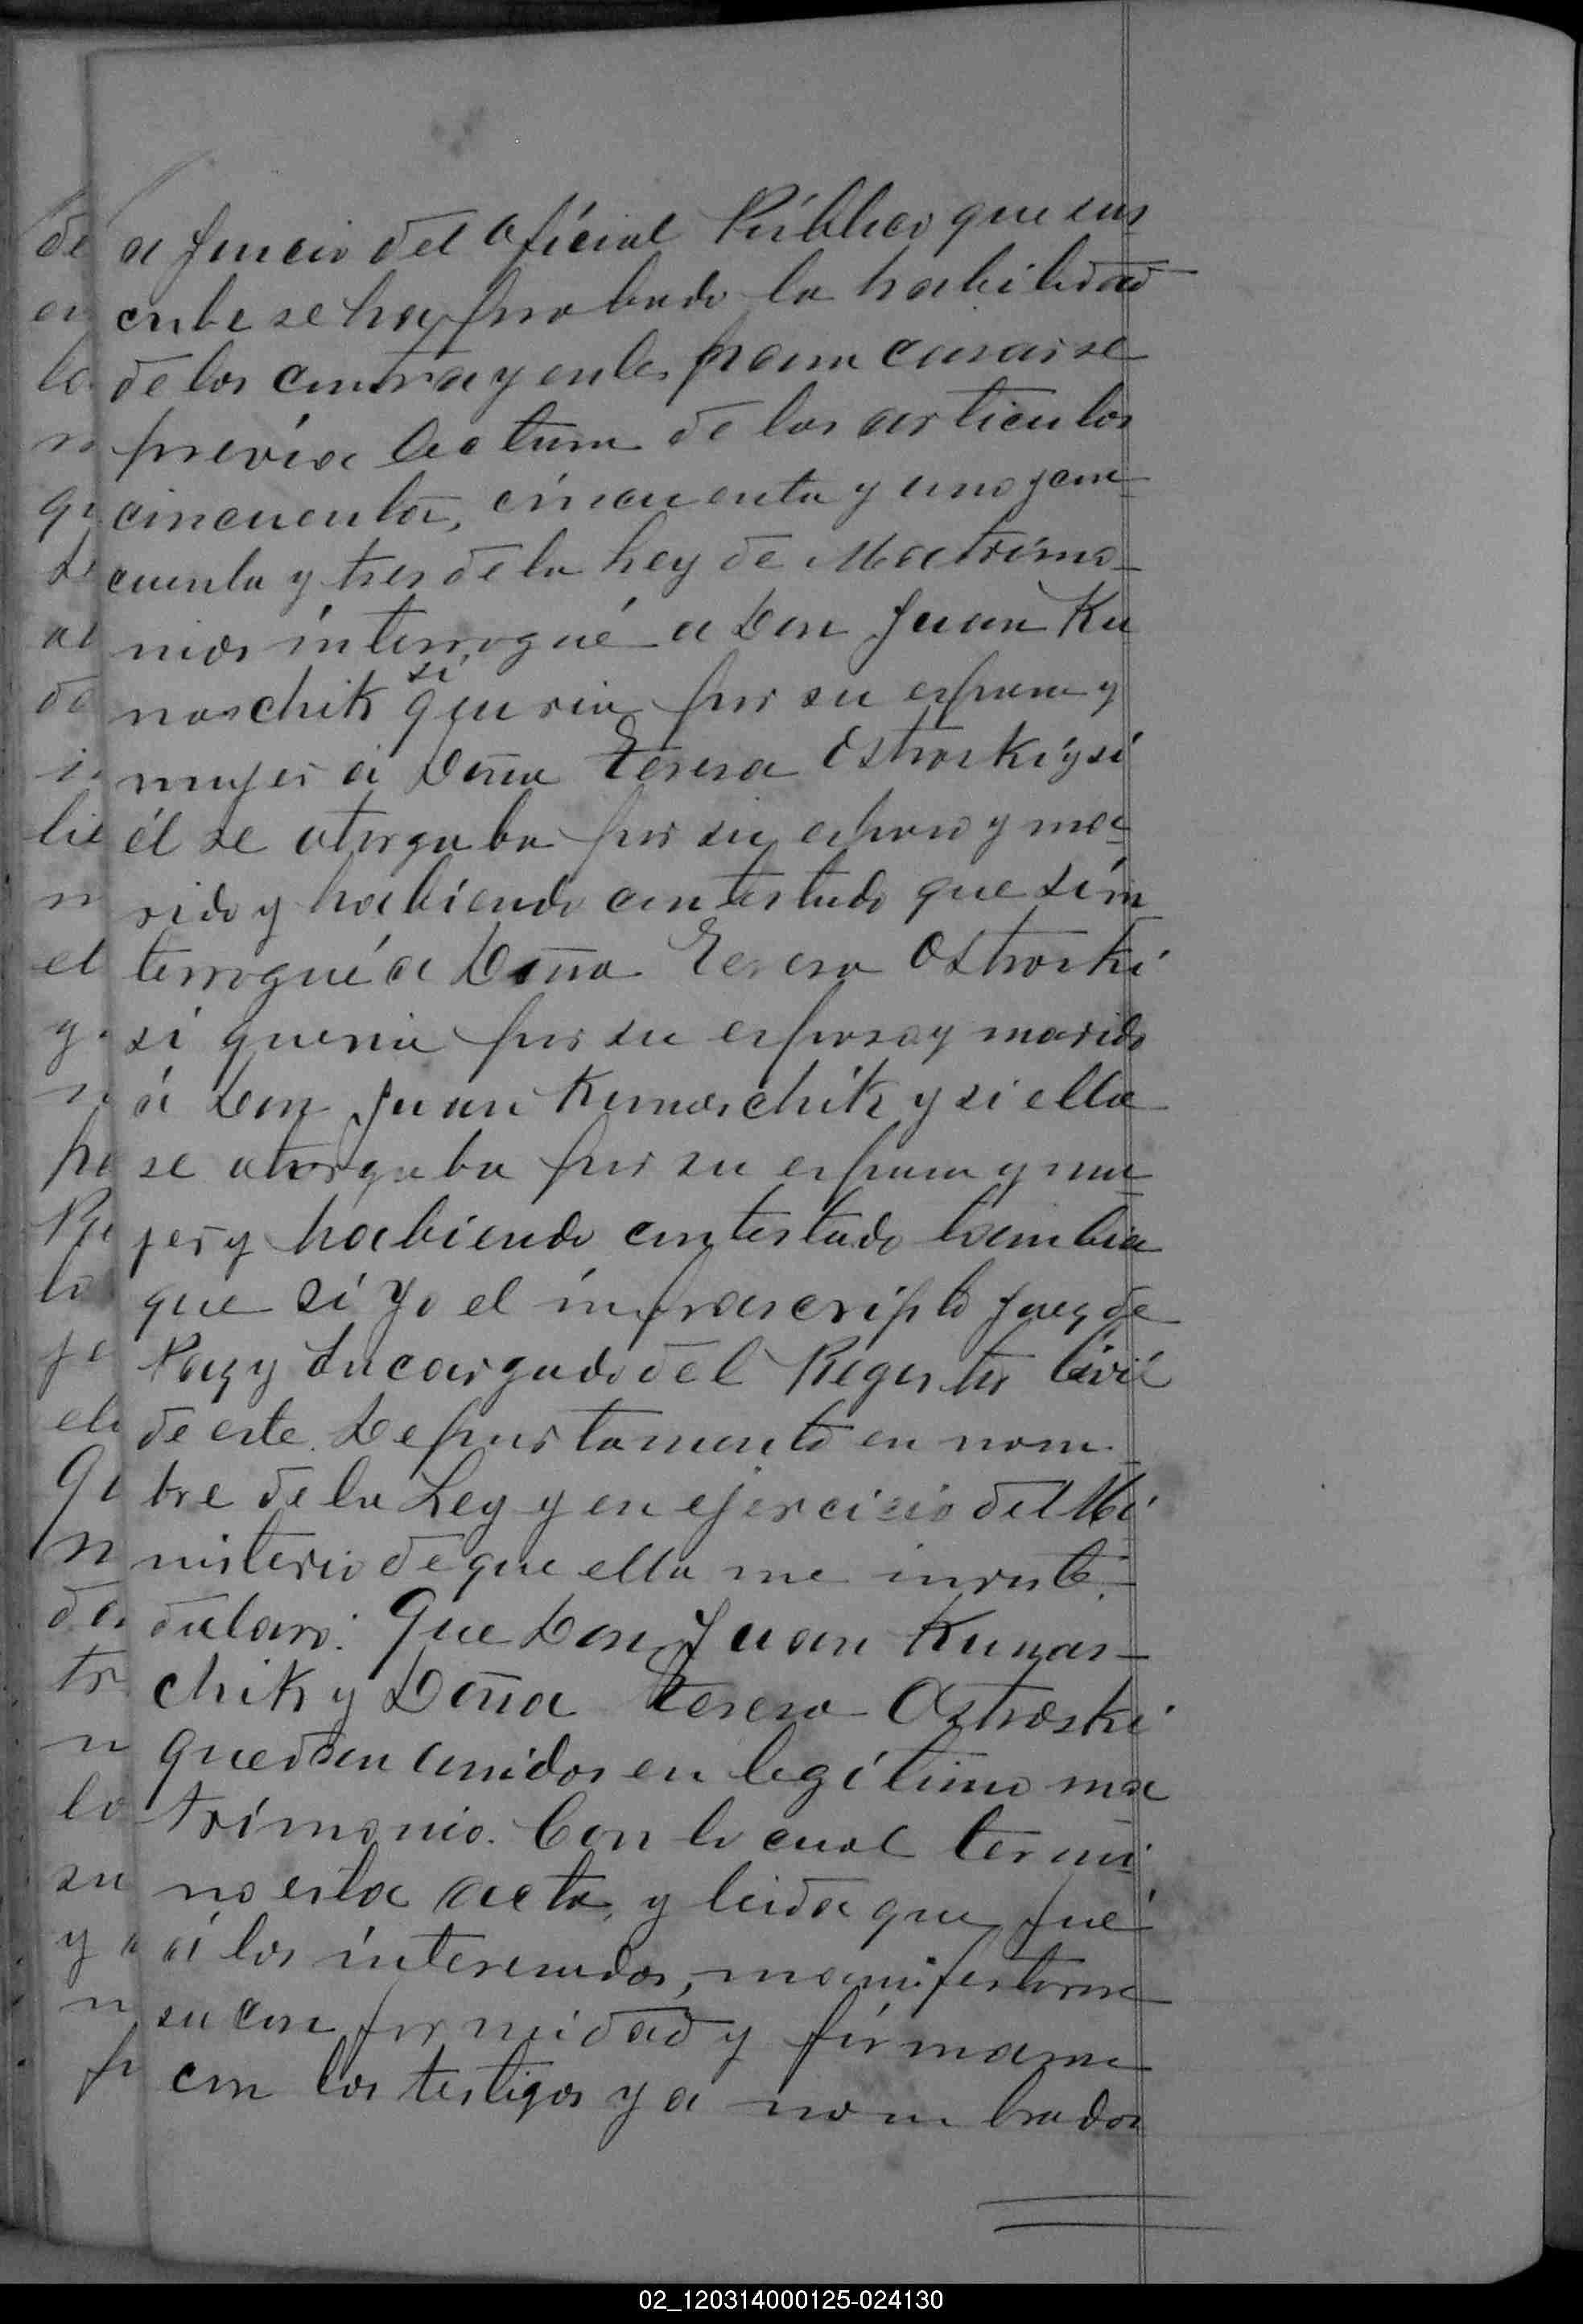 a juicio del Oficial Público que sus
cribe se ha probado la habilidad
de los contrayentes para casarse
prévia lectura de los articulos
cincuenta, cincuenta y uno y cin-
cuenta y tres de la Ley de Matrimo-
nios interrogué a Don Juan Ku
naschik si queria por su esposa y
mujer á Doña Teresa Ostroski y si
él se otorgaba por su esposo y ma-
rido y habiendo contestado que sí in
terrogué a Doña Teresa Ostroski
si queria por su esposo y marido
á Don Juan Kunaschik y si ella
se otorgaba por su esposa y mu-
jer y habiendo contestado tambien
que sí Yo el infrascripto Juez de
Paz y Encargado del Registro Civil
de este Departamento en nom-
bre de la Ley y en ejercicio del Mi
nisterio de que ella me inviste.
declaro: Que Don Juan Kunas-
chik y Doña Teresa Ostroski
quedan unidos en legítimo ma
trimonio. Con lo cual termi
no esta acta, y leida que fué
á los interesados, manifestaron
su conformidad y firmaron
con los testigos ya nombrados
02_120314000125-024130